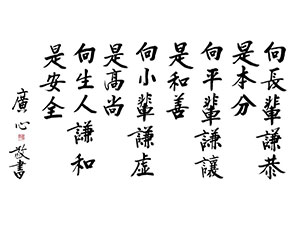 向長輩謙恭
是本分
向平輩謙讓
是和善
向小輩謙虛
是高尚
向生人謙和
是安全
廣心敬書